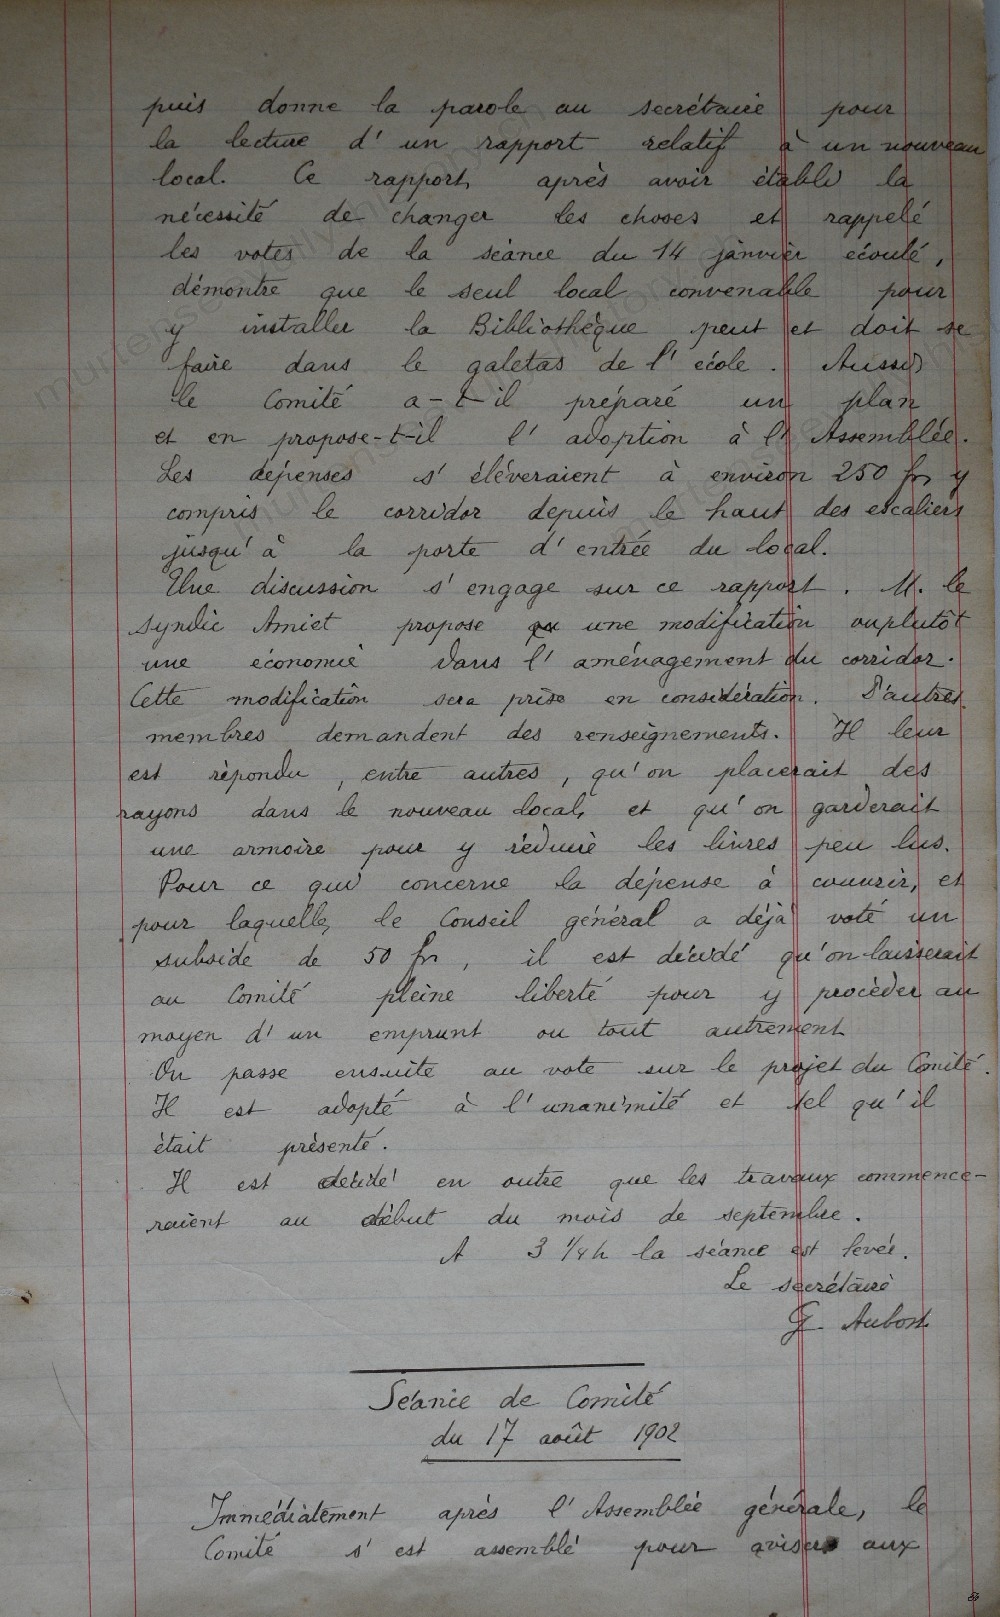 puis donne la parole au secrétaire pour
la lecture d'un rapport relatif à un nouveau
local. Ce rapport, après avoir établi la
nécessité de changer les choses et rappelé
les votes de la séance du 14 janvier écoulé,
démontre que le seul local convenable pour
y installer la Bibliothèque peut et doit se
faire dans le galetas de l'école. Aussi
le Comité a-t-il préparé un plan
et en propose-t-il l'adoption à l'Assemblée.
Les dépenses s'élèveraient à environ 250 fr, y
compris le corridor depuis le haut des escaliers
jusqu'à la porte d'entrée du local.
Une discussion s'engage sur ce rapport. M. le
syndic Amiet propose une modification ou plutôt
une économie dans l'aménagement du corridor.
Cette modification sera prise en considération. D'autres
membres demandent des renseignements. Il leur
est répondu, entre autres, qu'on placerait des
rayons dans le nouveau local, et qu'on garderait
une armoire pour y réduire les livres peu lus.
Pour ce qui concerne la dépense à couvrir, et
pour laquelle, le Conseil général a déjà voté un
subside de 50 fr, il est décidé qu'on laisserait
au Comité pleine liberté pour y procéder au
moyen d'un emprunt ou tout autrement
On passe ensuite au vote sur le projet du Comité.
Il est adopté à l'unanimité et tel qu'il
était présenté.
Il est décidé en outre que les travaux commence-
raient au début du mois de septembre.
A 3 1/4 h la séance est levée.
Le secrétaire
G. Aubort
Séance de Comité
du 17 août 1902
Immédiatement après l'Assemblée générale, le
Comité s'est assemblé pour aviser aux